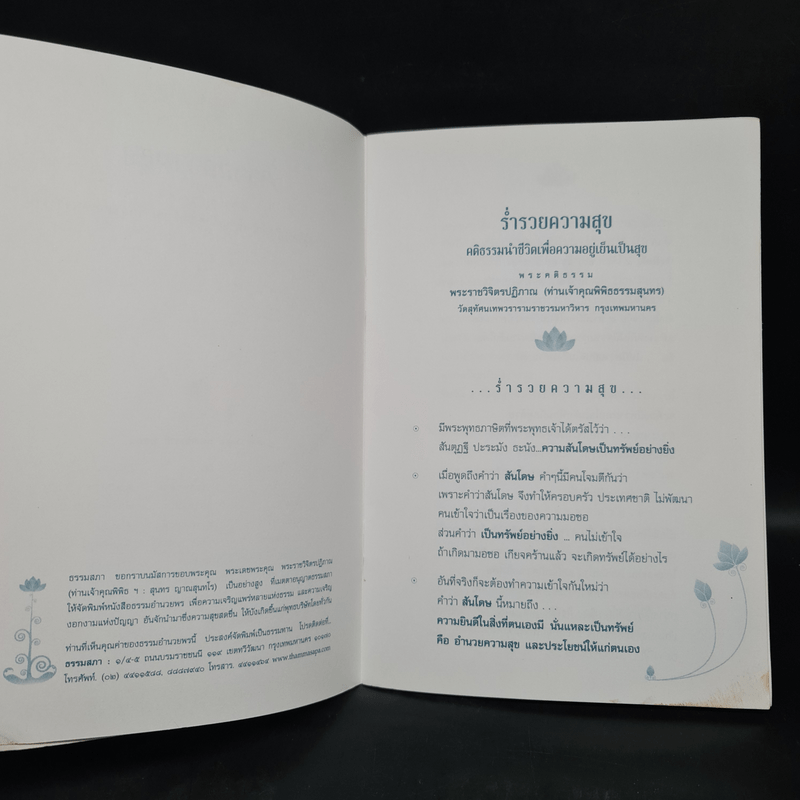 ธรรมสภา ขอกราบนมัสการขอบพระคุณ พระเดชพระคุณ พระราชวิจิตรปฏิภาณ
(ท่านเจ้าคุณพิพิธ ฯ : สุนทร ญาณสุนทโร) เป็นอย่างสูง ที่เมตตาอนุญาตธรรมสภา
ให้จัดพิมพ์หนังสือธรรมอำนวยพร เพื่อความเจริญแพร่หลายแห่งธรรม และความเจริญ
งอกงามแห่งปัญญา อันจักนำมาซึ่งความสุขสดชื่น ให้บังเกิดขึ้นแก่พุทธบริษัทโดยทั่วกัน
ท่านที่เห็นคุณค่าของธรรมอำนวยพรนี้ ประสงค์จัดพิมพ์เป็นธรรมทาน โปรดติดต่อที่..
ธรรมสภา : ๑/๔-๕ ถนนบรมราชชนนี ๑๑๙ เขตทวีวัฒนา กรุงเทพมหานคร ๑๐๑๗๐
โทรศัพท์. (๐๒) ๔๔๑๑๕๘๘, ๘๘๘๗๙๔๐ โทรสาร. ๔๔๑๑๔๖๔ www.thammasapa.com
ร่ำรวยความสุข
คติธรรมนำชีวิตเพื่อความอยู่เย็นเป็นสุข
พระคติธรรม
พระราชวิจิตรปฏิภาณ (ท่านเจ้าคุณพิพิธธรรมสุนทร)
วัดสุทัศนเทพวรารามราชวรมหาวิหาร กรุงเทพมหานคร
...ร่ำรวยความสุข...
มีพระพุทธภาษิตที่พระพุทธเจ้าได้ตรัสไว้ว่า ...
สันตุฏฐี ปะระมัง ธะนัง...ความสันโดษเป็นทรัพย์อย่างยิ่ง
เมื่อพูดถึงคำว่า สันโดษ คำๆนี้มีคนโจมตีกันว่า
เพราะคำว่าสันโดษ จึงทำให้ครอบครัว ประเทศชาติ ไม่พัฒนา
คนเข้าใจว่าเป็นเรื่องของความงอมืองอ
ส่วนคำว่า เป็นทรัพย์อย่างยิ่ง ... คนไม่เข้าใจ
ถ้าเกิดมามอซอ เกียจคร้านแล้ว จะเกิดทรัพย์ได้อย่างไร
อันที่จริงก็จะต้องทำความเข้าใจกันใหม่ว่า
คำว่า สันโดษ นี้หมายถึง ...
ความยินดีในสิ่งที่ตนเองมี นั่นแหละเป็นทรัพย์
คือ อำนวยความสุข และประโยชน์ให้แก่ตนเอง